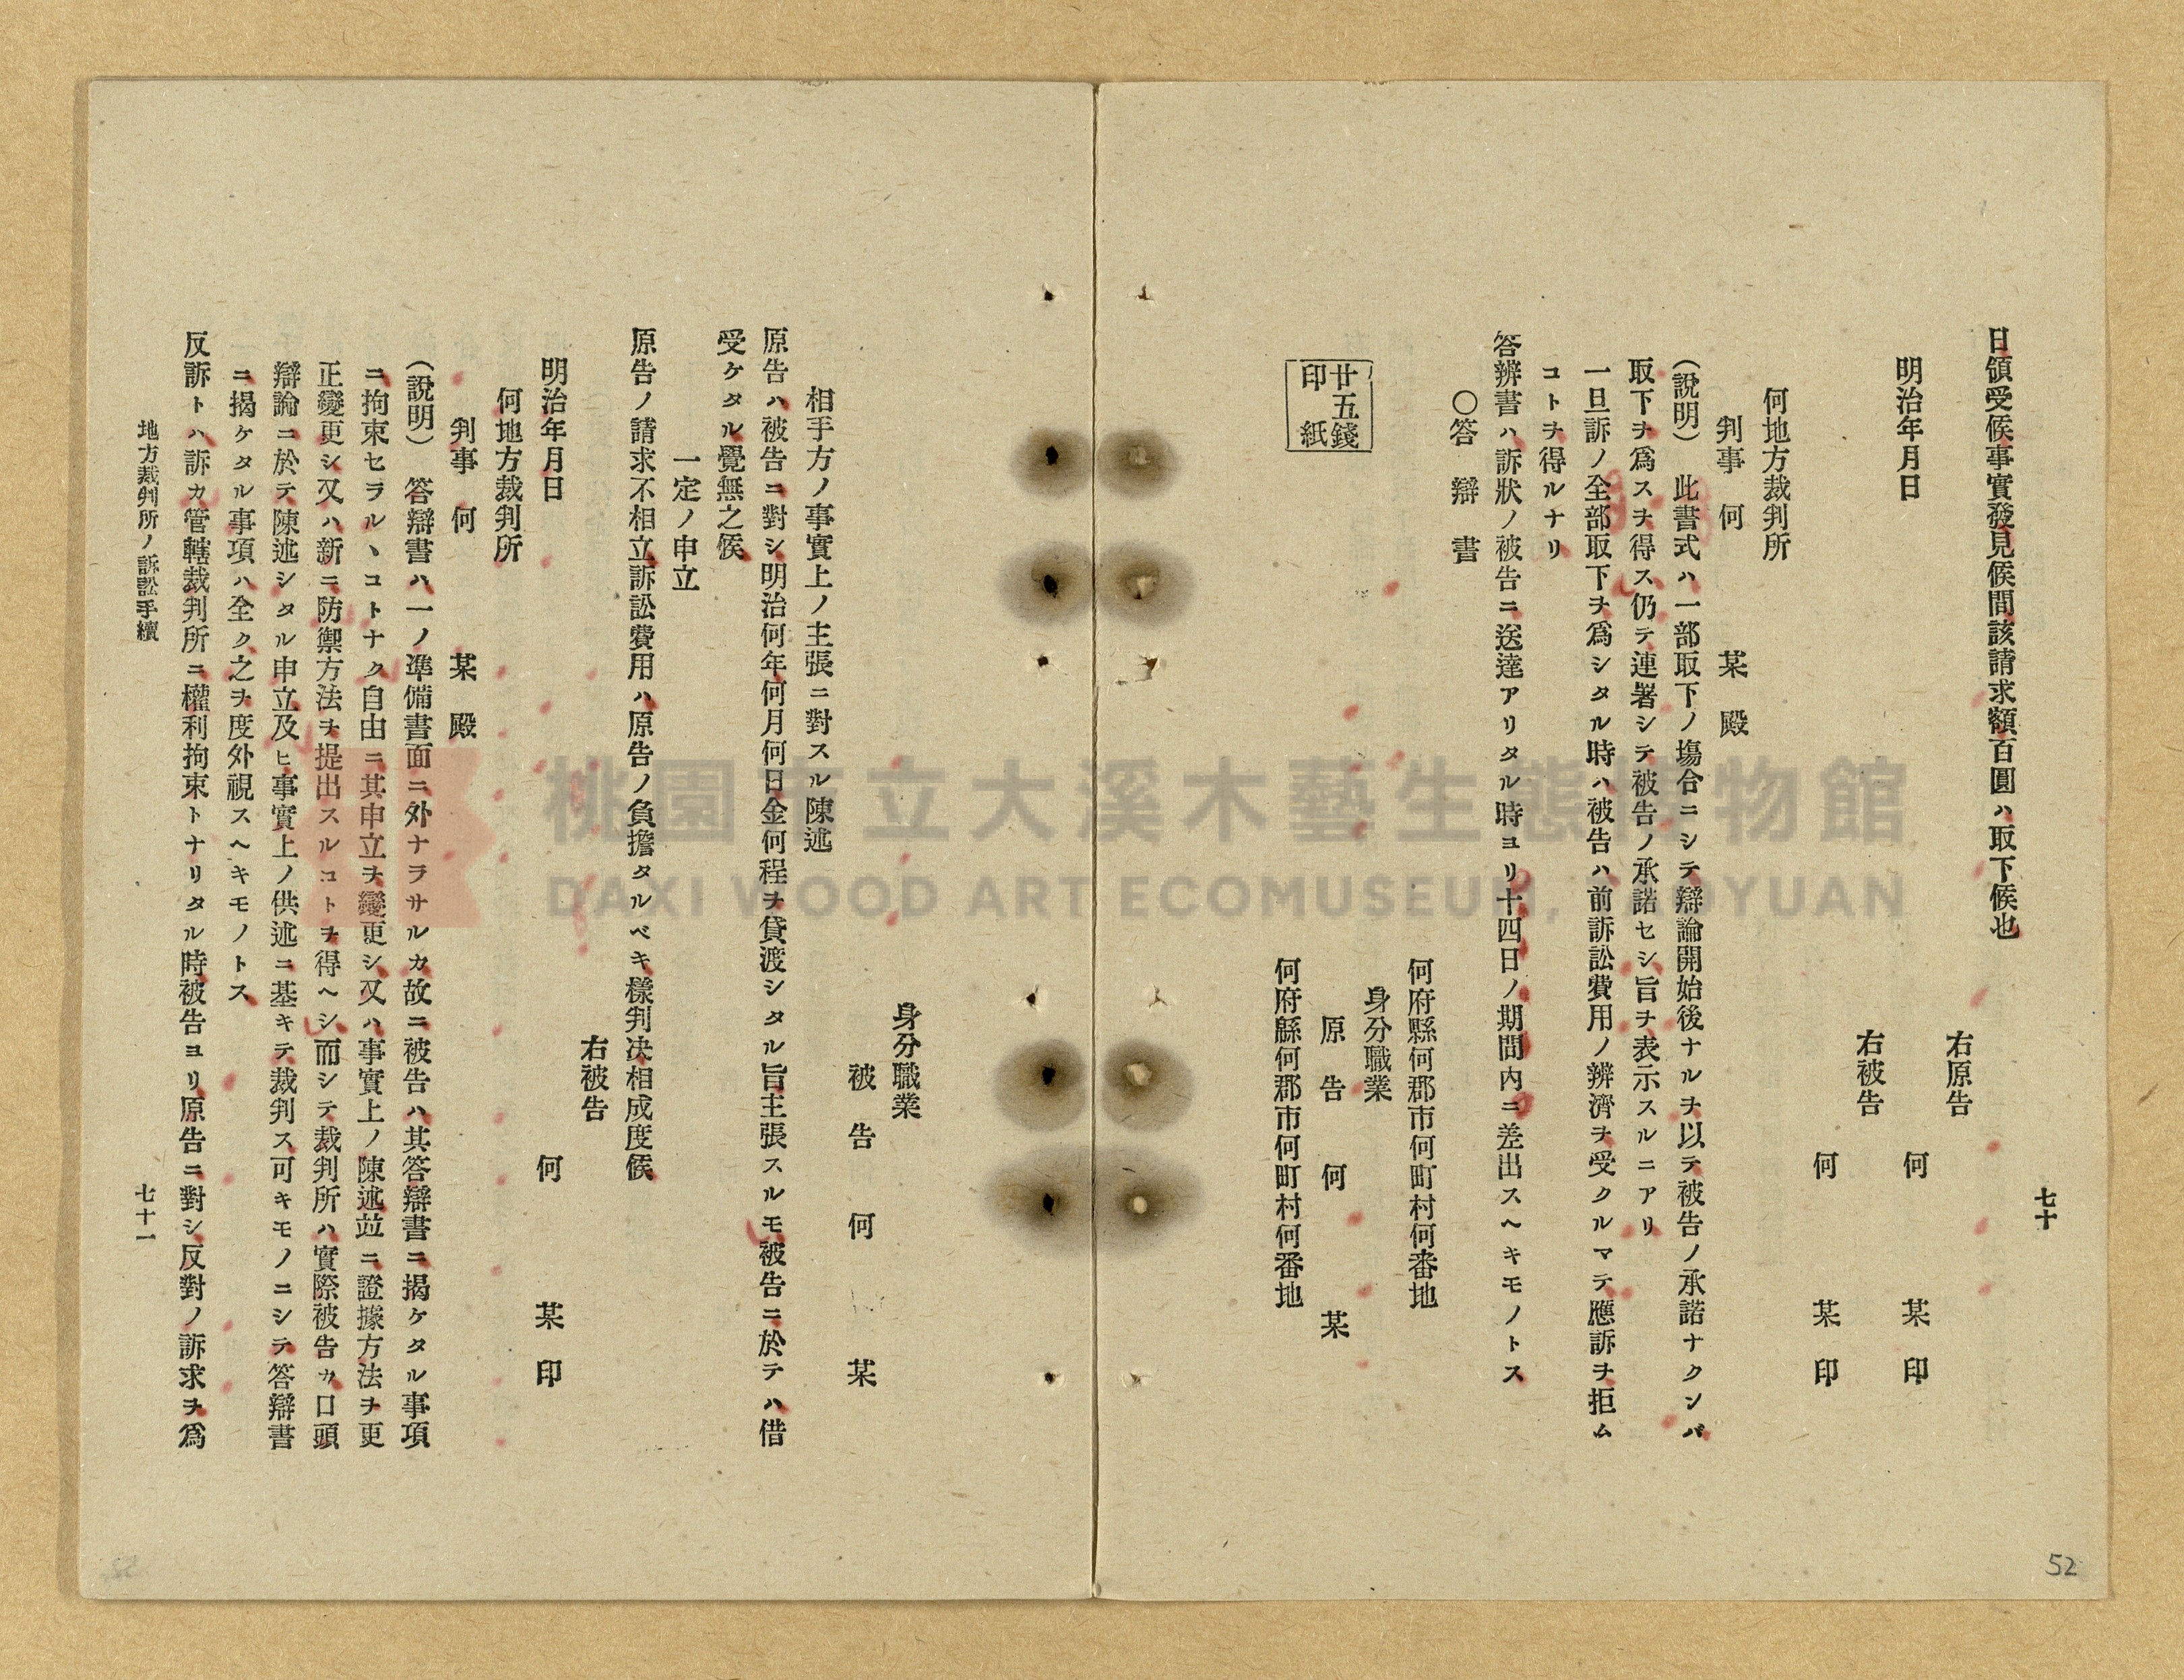 七十
日領受候事實發見候間該請求額百圓ハ取下候也
右原告　何　某　印
明治年月日
右被告　何　某　印
何地方裁判所
判事　何　某　殿
（說明）　此書式ハ一部取下ノ塲合ニシテ辯論開始後ナルヲ以テ被告ノ承諾ナクンバ
取下ヲ爲スヲ得ス仍テ連署シテ被告ノ承諾セシ旨ヲ表示スルニアリ
一旦訴ノ全部取下ヲ爲シタル時ハ被告ハ前訴訟費用ノ辨濟ヲ受クルマテ應訴ヲ拒ム
コトヲ得ルナリ
答辨書ハ訴狀ノ被告ニ送達アリタル時ヨリ十四日ノ期間內ニ差出スヘキモノトス
〇答辯書
何府縣何郡市何町村何番地
身分職業
廿五錢
印紙
原告　何　某
何府縣何郡市何町村何番地
身分職業
被告　何　某
相手方ノ事實上ノ主張ニ對スル陳述
原告ハ被告ニ對シ明治何年何月何日金何程ヲ貸渡シタル旨主張スルモ被告ニ於テハ借
受ケタル覺無之候
一定ノ申立
原告ノ請求不相立訴訟費用ハ原告ノ負擔タルベキ樣判決相成度候
右被告
明治年月日　何　某　印
何地方裁判所
判事　何　某　殿
（說明）　答辯書ハ一ノ準備書面ニ外ナラサルカ故ニ被告ハ其答辯書ニ揭ケタル事項
ニ拘束セラルヽコトナク自由ニ其申立ヲ變更シ又ハ事實上ノ陳述竝ニ證據方法ヲ更
正變更シ又ハ新ニ防禦方法ヲ提出スルコトヲ得ヘシ而シテ裁判所ハ實際被告カ口頭
辯論ニ於テ陳述シタル申立及ヒ事實上ノ供述ニ基キテ裁判ス可キモノニシテ答辯書
ニ揭ケタル事項ハ全ク之ヲ度外視スヘキモノトス
反訴トハ訴カ管轄裁判所ニ權利拘束トナリタル時被告ヨリ原告ニ對シ反對ノ訴求ヲ爲
地方裁判所ノ訴訟手續　七十一
52
桃園市立大溪木藝生態博物館
DAXI WOOD ART ECOMUSEUM, TAOYUAN